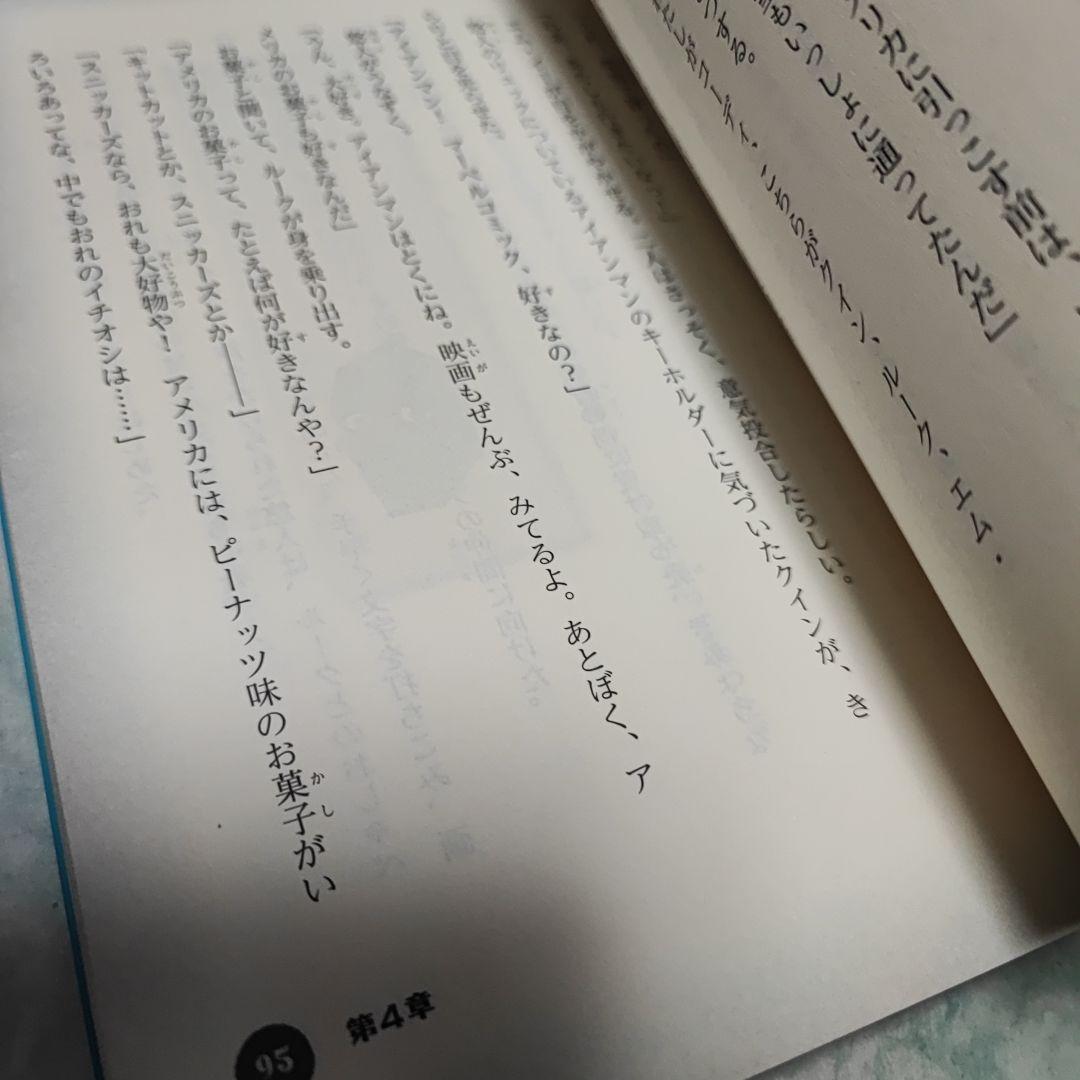 リカに引っこす前は、
もいっしょに通ってたんだ」
つする。
わたしがコーディ、こちらがクイン、ルーク、エム・
はさっそく、意気投合したらしい。
アイアンマンのキーホルダーに気づいたクインが、き
アイアンマン！ マーベルコミック、好きなの？」
「うん、大好き。アイアンマンはとくにね。映画もぜんぶ、みてるよ。あとぼく、ア
メリカのお菓子も好きなんだ」
お菓子と聞いて、ルークが身を乗り出す。
「アメリカのお菓子って、たとえば何が好きなんや？」
「キットカットとか、スニッカーズとか――」
「スニッカーズなら、おれも大好物や！ アメリカには、ピーナッツ味のお菓子がい
ろいろあってな、中でもおれのイチオシは……」
第4章
95